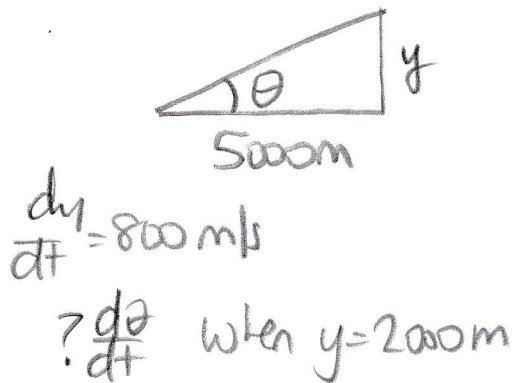 θ
y
5000m
dy/dt = 800 m/s
? dθ/dt when y=2000m